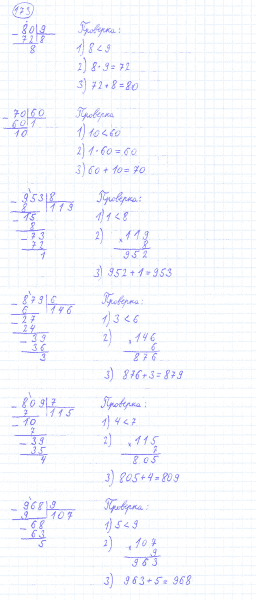 173
80|9 Проверка:
72|8 1) 8<9
8 2) 8·9=72
3) 72+8=80
70|60 Проверка
60|1 1) 10<60
10 2) 1·60=60
3) 60+10=70
953|8 Проверка:
8 |119 1) 1<8
15 2) 119
8 × 8
73 952
72
1 3) 952+1=953
879|6 Проверка:
6 |146 1) 3<6
27 2) 146
24 × 6
39 876
36
3 3) 876+3=879
809|7 Проверка:
7 |115 1) 4<7
10 2) 115
7 × 7
39 805
35
4 3) 805+4=809
968|9 Проверка:
9 |107 1) 5<9
68 2) 107
63 × 9
5 963
3) 963+5=968